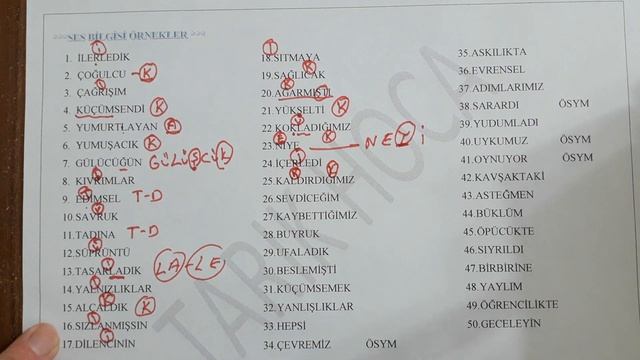 SES BİLGİSİ ÖRNEKLER
1. İLERLEDİK
2. ÇOĞULCU - K
3. ÇAĞRIŞIM
4. KÜÇÜMSENDİ K
5. YUMURTLAYAN A
6. YUMUŞACIK K
7. GÜLÜCÜĞÜN GÜLÜŞCÜK
8. KIVRIMLAR
9. EDİMSEL T-D
10.SAVRUK
11.TADINA T-D
12.SÜPRÜNTÜ
13.TASARLADIK LA-LE
14.YALNIZLIKLAR
15.ALÇALDIK K
16.SIZLANMIŞSIN
17.DİLENCİNİN
18.SITMAYA
19.SAĞLICAK
20.AĞARMIŞTI
21.YÜKSELTİ K
22.KOKLADIĞIMIZ
23.NİYE NEYİ
24.İÇERLEDİ
25.KALDIRDIĞIMIZ
26.SEVDİCEĞİM
27.KAYBETTİĞİMİZ
28.BUYRUK
29.UFALADIK
30.BESLEMİŞTİ
31.KÜÇÜMSEMEK
32.YANLIŞLIKLAR
33.HEPSİ
34.ÇEVREMİZ ÖSYM
35.ASKILIKTA
36.EVRENSEL
37.ADIMLARIMIZ
38.SARARDI ÖSYM
39.YUDUMLADI
40.UYKUMUZ ÖSYM
41.OYNUYOR ÖSYM
42.KAVŞAKTAKİ
43.ASTEĞMEN
44.BÜKLÜM
45.ÖPÜCÜKTE
46.SIYRILDI
47.BİRBİRİNE
48.YAYLIM
49.ÖĞRENCİLİKTE
50.GECELEYİN
TARIK HOCA